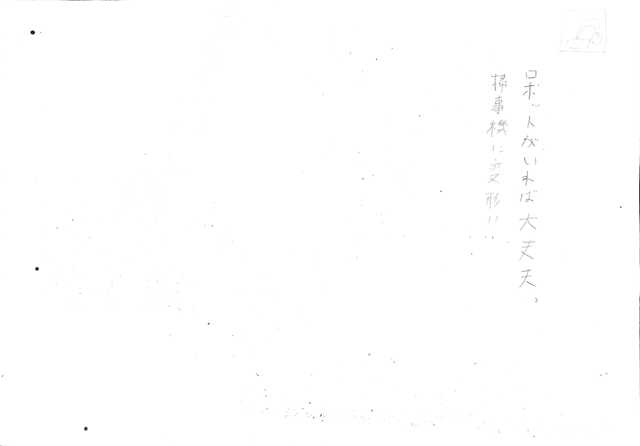 ロボットがいれば大丈夫。
掃事機に変形!!